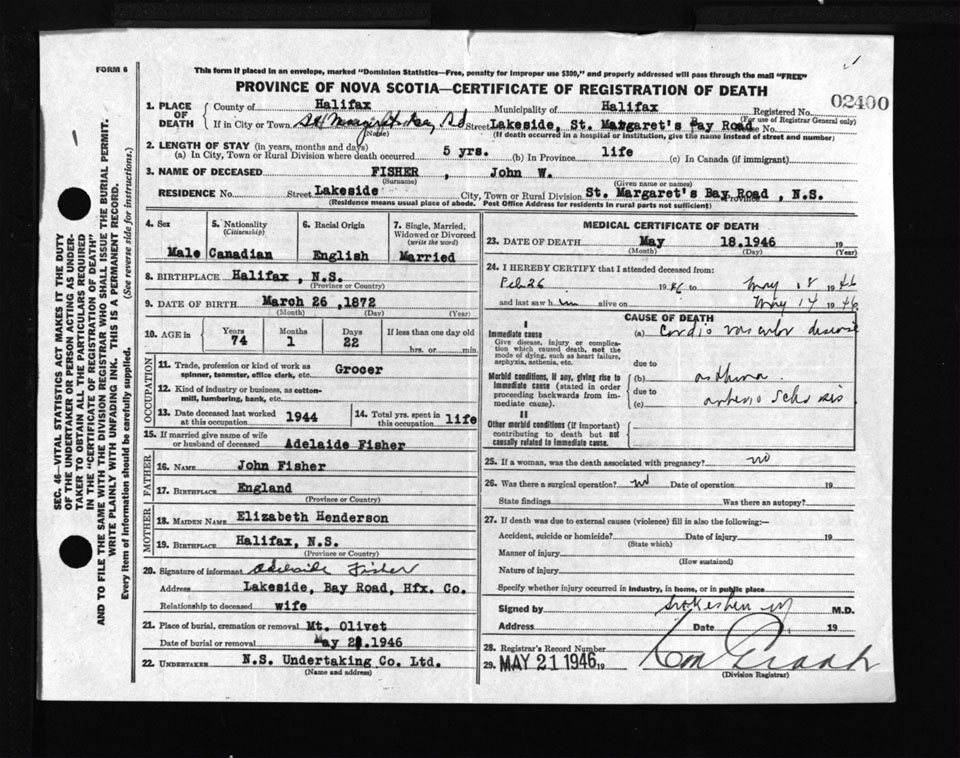 FORM 6
This form if placed in an envelope, marked "Dominion Statistics—Free, penalty for improper use $300," and properly addressed will pass through the mail "FREE"
PROVINCE OF NOVA SCOTIA—CERTIFICATE OF REGISTRATION OF DEATH
02400
1. PLACE OF DEATH
County of Halifax Municipality of Halifax Registered No.
(For use of Registrar General only)
If in City or Town St Margaret Bay Rd Street Lakeside, St. Margaret's Bay Road No.
(Name) (If death occurred in a hospital or institution, give the name instead of street and number)
2. LENGTH OF STAY (in years, months and days)
(a) In City, Town or Rural Division where death occurred 5 yrs. (b) In Province life (c) In Canada (if immigrant)
3. NAME OF DECEASED FISHER , John W.
(Surname) (Given name or names)
RESIDENCE No. Street Lakeside City, Town or Rural Division St. Margaret's Bay Road , N.S. Province
(Residence means usual place of abode. Post Office Address for residents in rural parts not sufficient)
4. Sex
Male
5. Nationality
(Citizenship)
Canadian
6. Racial Origin
English
7. Single, Married, Widowed or Divorced
(write the word)
Married
8. BIRTHPLACE Halifax , N.S.
9. DATE OF BIRTH March 26 ,1872
(Month) (Day) (Year)
10. AGE in
Years Months Days If less than one day old
74 1 22 hrs. or min
OCCUPATION
11. Trade, profession or kind of work as spinner, teamster, office clerk, etc. Grocer
12. Kind of industry or business, as cotton-mill, lumbering, bank, etc.
13. Date deceased last worked at this occupation 1944
14. Total yrs. spent in this occupation life
15. If married give name of wife or husband of deceased Adelaide Fisher
FATHER
16. NAME John Fisher
17. BIRTHPLACE England
(Province or Country)
MOTHER
18. MAIDEN NAME Elizabeth Henderson
19. BIRTHPLACE Halifax, N.S.
(Province or Country)
20. Signature of informant Adelaide Fisher
Address Lakeside, Bay Road, Hfx. Co.
Relationship to deceased wife
21. Place of burial, cremation or removal Mt. Olivet
Date of burial or removal May 1946
22. UNDERTAKER N.S. Undertaking Co. Ltd.
(Name and address)
MEDICAL CERTIFICATE OF DEATH
23. DATE OF DEATH May 18.1946 19
(Month) (Day) (Year)
24. I HEREBY CERTIFY that I attended deceased from:
Feb 26 1946 to May 18 1946
and last saw him alive on May 14 1946
CAUSE OF DEATH
I
Immediate cause
Give disease, injury or complication which caused death, not the mode of dying, such as heart failure, asphyxia, asthenia, etc.
(a) Cardio vascular disease
due to
Morbid conditions, if any, giving rise to immediate cause (stated in order proceeding backwards from immediate cause).
(b) asthma
due to
(c) arterio sclerosis
II
Other morbid conditions (if important) contributing to death but not causally related to immediate cause.
25. If a woman, was the death associated with pregnancy? no
26. Was there a surgical operation? no Date of operation 19
State findings Was there an autopsy?
27. If death was due to external causes (violence) fill in also the following:—
Accident, suicide or homicide? Date of injury 19
(State which)
Manner of injury
(How sustained)
Nature of injury
Specify whether injury occurred in industry, in home, or in public place
Signed by M.D.
Address Date 19
28. Registrar's Record Number
29. MAY 21 1946 19
(Division Registrar)
SEC. 46—VITAL STATISTICS ACT MAKES IT THE DUTY
OF THE UNDERTAKER OR PERSON ACTING AS UNDER-
TAKER TO OBTAIN ALL THE PARTICULARS REQUIRED
IN THE "CERTIFICATE OF REGISTRATION OF DEATH"
AND TO FILE THE SAME WITH THE DIVISION REGISTRAR WHO SHALL ISSUE THE BURIAL PERMIT.
WRITE PLAINLY WITH UNFADING INK. THIS IS A PERMANENT RECORD.
Every item of information should be carefully supplied. (See reverse side for instructions.)